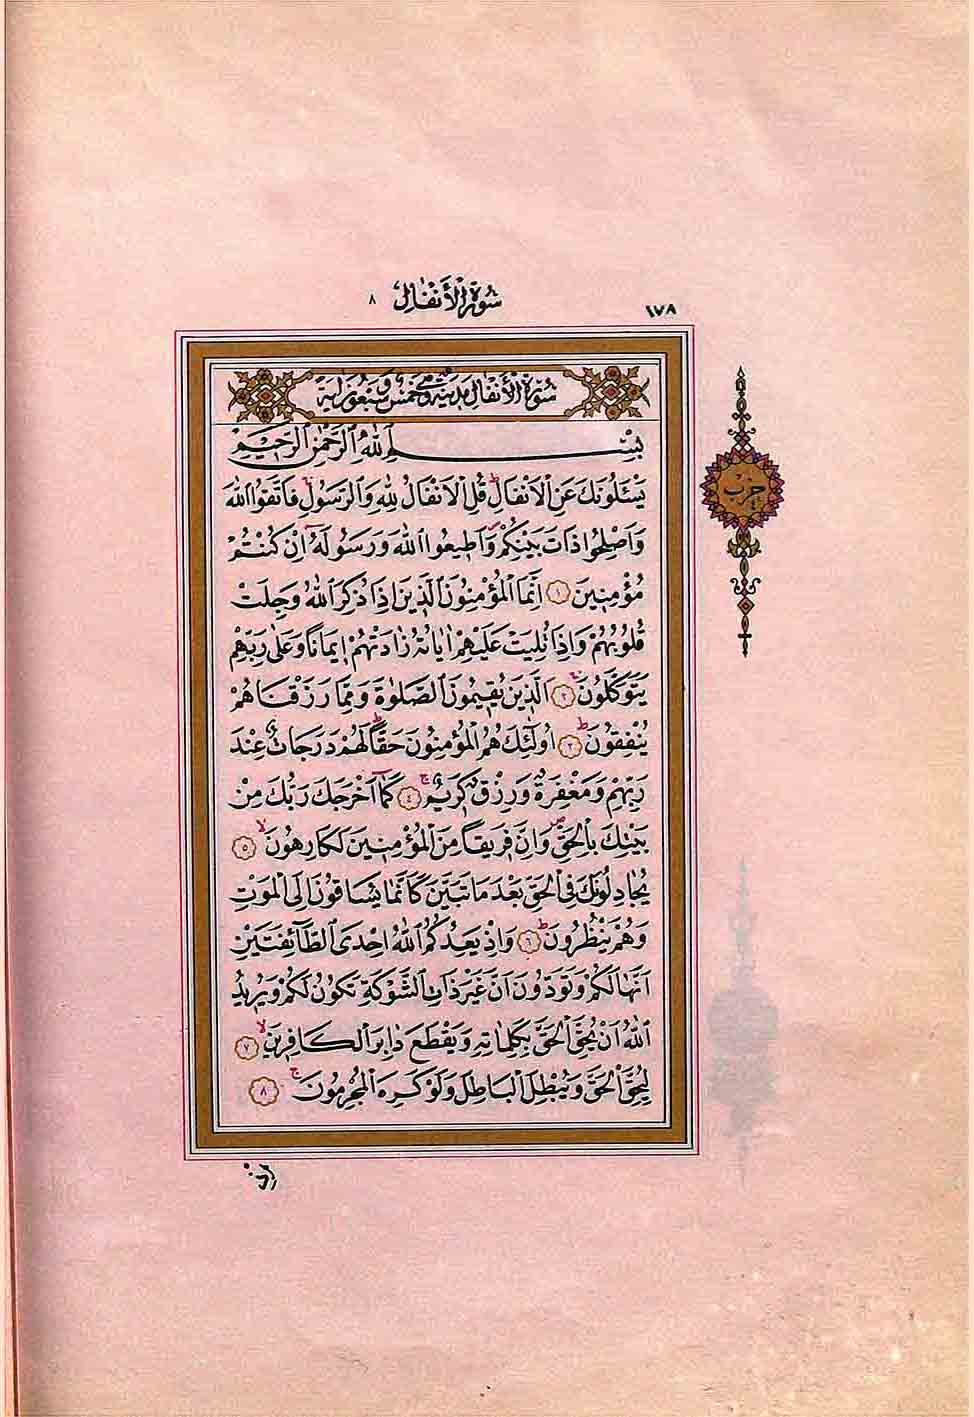 ١٧٨
سُورَةُ الْأَنْفَالِ ٨
سُورَةُ الْأَنْفَالِ مَدَنِيَّةٌ وَهِيَ خَمْسٌ وَسَبْعُونَ اٰيَةً
بِسْمِ اللّٰهِ الرَّحْمٰنِ الرَّحِيمِ
يَسْـَٔلُونَكَ عَنِ الْاَنْفَالِ قُلِ الْاَنْفَالُ لِلّٰهِ وَالرَّسُولِ فَاتَّقُوا اللّٰهَ
وَاَصْلِحُوا ذَاتَ بَيْنِكُمْ وَاَطِيعُوا اللّٰهَ وَرَسُولَهُٓ اِنْ كُنْتُمْ
مُؤْمِنِينَ ١ اِنَّمَا الْمُؤْمِنُونَ الَّذِينَ اِذَا ذُكِرَ اللّٰهُ وَجِلَتْ
قُلُوبُهُمْ وَاِذَا تُلِيَتْ عَلَيْهِمْ اٰيَاتُهُ زَادَتْهُمْ اِيمَانًا وَعَلٰى رَبِّهِمْ
يَتَوَكَّلُونَ ٢ اَلَّذِينَ يُقِيمُونَ الصَّلٰوةَ وَمِمَّا رَزَقْنَاهُمْ
يُنْفِقُونَ ٣ اُولٰٓئِكَ هُمُ الْمُؤْمِنُونَ حَقًّا لَهُمْ دَرَجَاتٌ عِنْدَ
رَبِّهِمْ وَمَغْفِرَةٌ وَرِزْقٌ كَرِيمٌ ٤ كَمَٓا اَخْرَجَكَ رَبُّكَ مِنْ
بَيْتِكَ بِالْحَقِّ وَاِنَّ فَرِيقًا مِنَ الْمُؤْمِنِينَ لَكَارِهُونَ ٥
يُجَادِلُونَكَ فِي الْحَقِّ بَعْدَ مَا تَبَيَّنَ كَاَنَّمَا يُسَاقُونَ اِلَى الْمَوْتِ
وَهُمْ يَنْظُرُونَ ٦ وَاِذْ يَعِدُكُمُ اللّٰهُ اِحْدَى الطَّٓائِفَتَيْنِ
اَنَّهَا لَكُمْ وَتَوَدُّونَ اَنَّ غَيْرَ ذَاتِ الشَّوْكَةِ تَكُونُ لَكُمْ وَيُرِيدُ
اللّٰهُ اَنْ يُحِقَّ الْحَقَّ بِكَلِمَاتِهِ وَيَقْطَعَ دَابِرَ الْكَافِرِينَ ٧
لِيُحِقَّ الْحَقَّ وَيُبْطِلَ الْبَاطِلَ وَلَوْ كَرِهَ الْمُجْرِمُونَ ٨
حزب